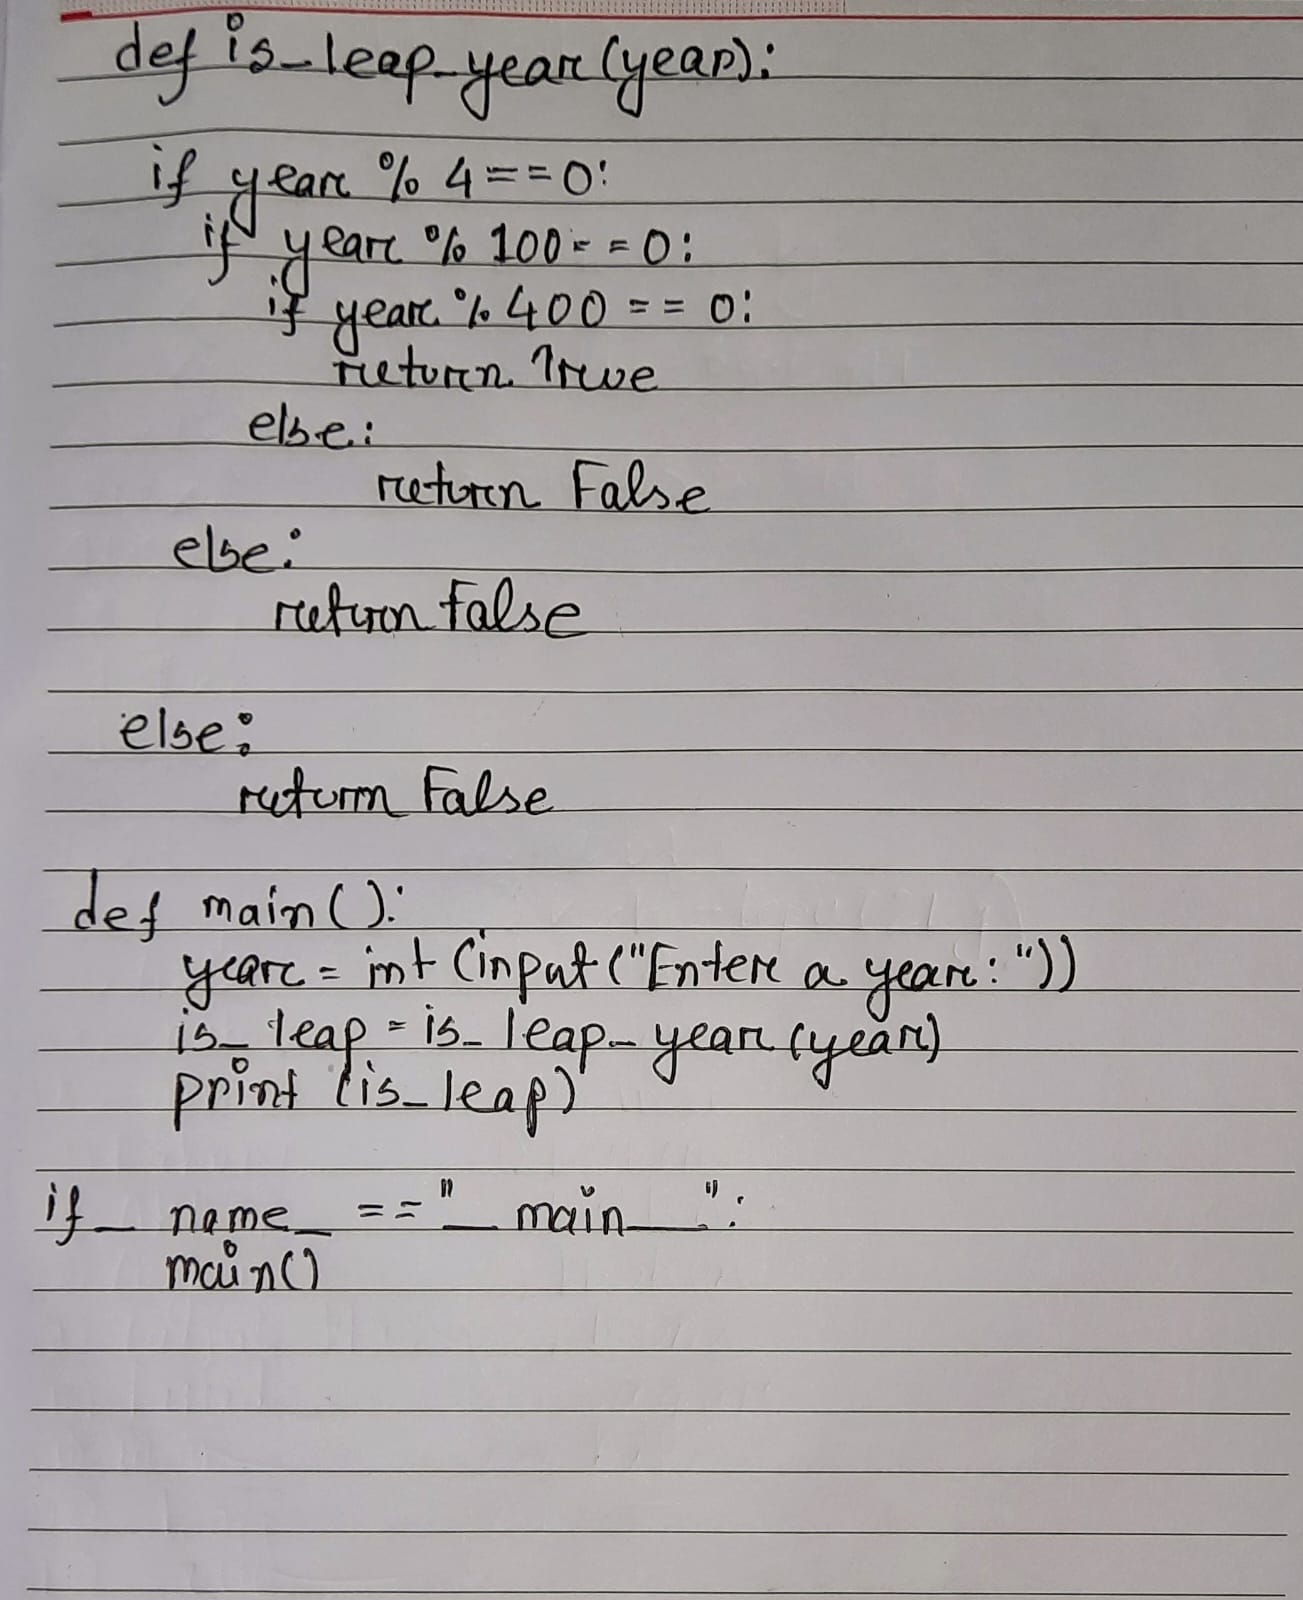 def is_leap_year(year):
if year % 4 == 0:
if year % 100 == 0:
if year % 400 == 0:
return True
else:
return False
else:
return False
else:
return False
def main():
year = int(input("Enter a year: "))
is_leap = is_leap_year(year)
print(is_leap)
if _ name_ == "_ main__":
main()